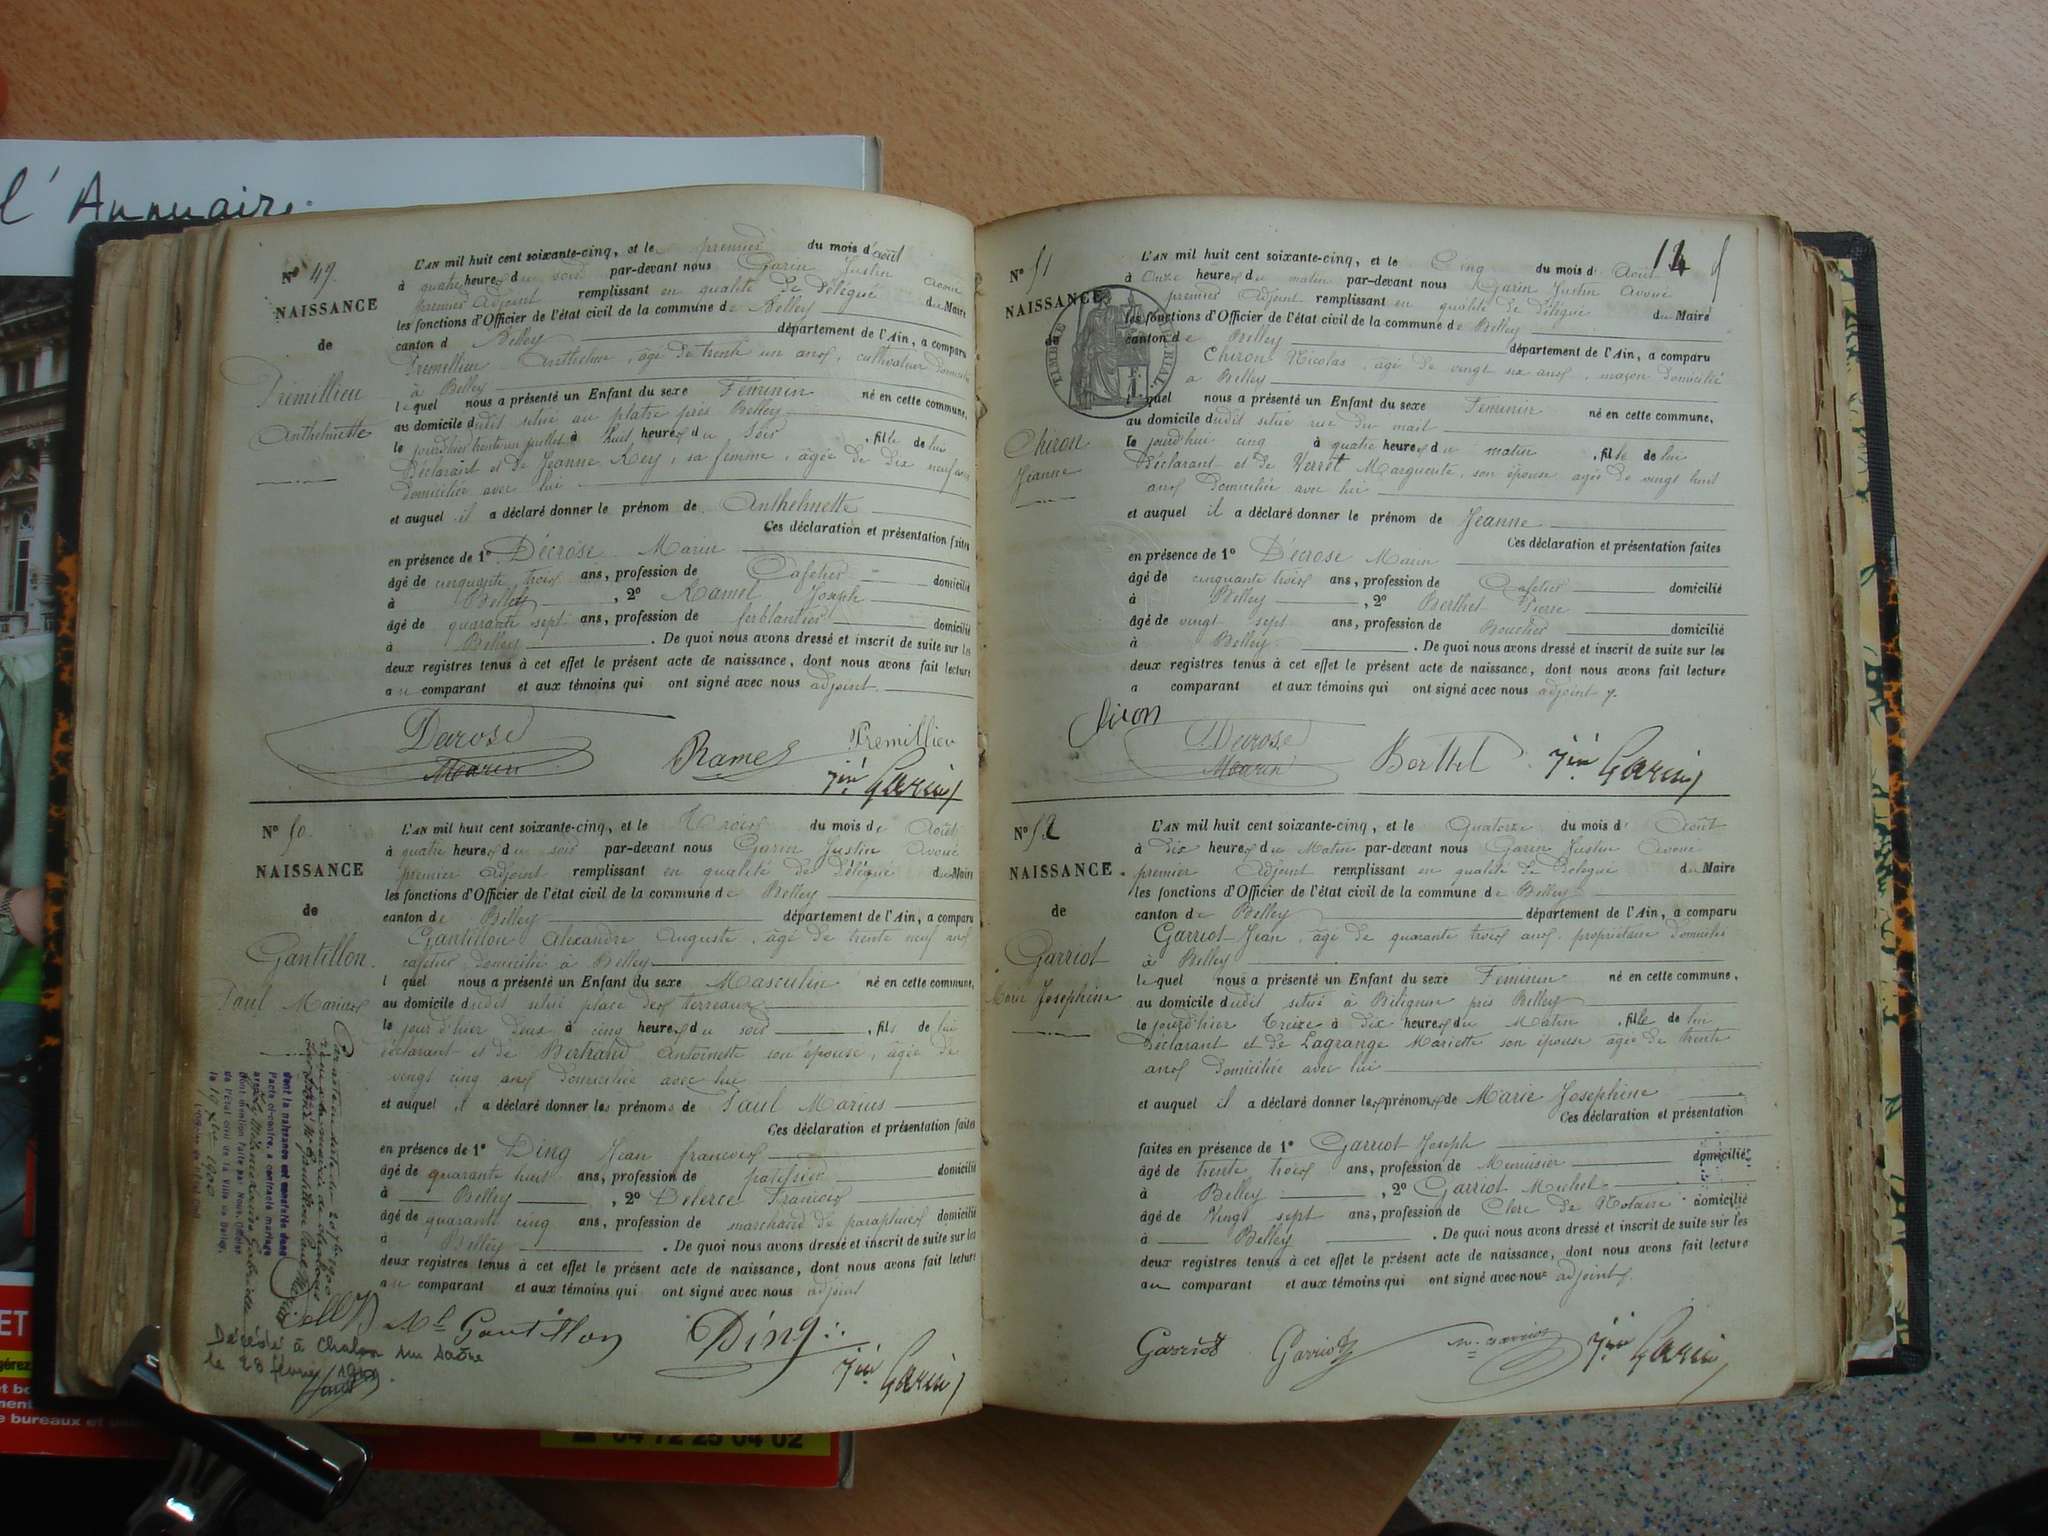 l'Annuaire
Nº 49.
NAISSANCE
de
Prémillieu
Anthelmette
L'AN mil huit cent soixante-cinq, et le premier du mois d'août
à quatre heures du soir par-devant nous Garin Justin avoué
premier adjoint remplissant en qualité de délégué du Maire
les fonctions d'Officier de l'état civil de la commune de Belley
canton d Belley département de l'Ain, a comparu
Prémillieu Anthelme, âgé de trente un ans, cultivateur domicilié
à Belley
lequel nous a présenté un Enfant du sexe Féminin né en cette commune,
au domicile dudit situé au platre près Belley
le jourd'hier trente un juillet à huit heures du soir, fille de lui
Déclarant et de Jeanne Rey, sa femme, âgée de dix neuf ans
domiciliée avec lui
et auquel il a déclaré donner le prénom de Anthelmette
Ces déclaration et présentation faites
en présence de 1º Décrose Marin
âgé de cinquante trois ans, profession de Cafetier domicilié
à Belley, 2º Ramel Joseph
âgé de quarante sept ans, profession de ferblantier domicilié
à Belley. De quoi nous avons dressé et inscrit de suite sur les
deux registres tenus à cet effet le présent acte de naissance, dont nous avons fait lecture
au comparant et aux témoins qui ont signé avec nous adjoint.
Decrose Marin Ramel Premillieu
Jin Garin
Nº 50
NAISSANCE
de
Gantillon
Paul Marius
L'AN mil huit cent soixante-cinq, et le Trois du mois de Août
à quatre heures du soir par-devant nous Garin Justin Avoué
premier Adjoint remplissant en qualité de Délégué du Maire
les fonctions d'Officier de l'état civil de la commune de Belley
canton de Belley département de l'Ain, a comparu
Gantillon Alexandre Auguste, âgé de trente neuf ans
cafetier domicilié à Belley
l quel nous a présenté un Enfant du sexe Masculin né en cette commune,
au domicile dudit situé place des terreaux
le jour d'hier deux à cinq heures du soir, fils de lui
déclarant et de Bertrand Antoinette son épouse, âgée de
vingt cinq ans domiciliée avec lui
et auquel il a déclaré donner les prénoms de Paul Marius
Ces déclaration et présentation faites
en présence de 1º Ding Jean françois
âgé de quarante huit ans, profession de patissier domicilié
à Belley, 2º Delerce François
âgé de quarante cinq ans, profession de marchand de parapluies domicilié
à Belley. De quoi nous avons dressé et inscrit de suite sur les
deux registres tenus à cet effet le présent acte de naissance, dont nous avons fait lecture
au comparant et aux témoins qui ont signé avec nous adjoint
Gantillon Ding
Jin Garin
dont la naissance est constatée dans
l'acte ci-contre, a contracté mariage
avec
dont mention faite par Nous, Officier
de l'état civil de la Ville de Belley,
le 19 1900
Décédé à Chalon sur Saône
le 28 février
14
Nº 51
NAISSANCE
de
Chiron
Jeanne
TIMBRE IMPERIAL
L'AN mil huit cent soixante-cinq, et le Cinq du mois d Août
à Onze heures du matin par-devant nous Garin Justin avoué
premier adjoint remplissant en qualité de délégué du Maire
les fonctions d'Officier de l'état civil de la commune de Belley
canton de Belley département de l'Ain, a comparu
Chiron Nicolas, âgé de vingt six ans, maçon domicilié
à Belley
lequel nous a présenté un Enfant du sexe Féminin né en cette commune,
au domicile dudit situé rue du mail
le jourd'hui cinq à quatre heures du matin, fille de lui
Déclarant et de Verret Marguerite, son épouse âgée de vingt huit
ans domiciliée avec lui
et auquel il a déclaré donner le prénom de Jeanne
Ces déclaration et présentation faites
en présence de 1º Décrose Marin
âgé de cinquante trois ans, profession de Cafetier domicilié
à Belley, 2º Berthet Pierre
âgé de vingt sept ans, profession de Boucher domicilié
à Belley. De quoi nous avons dressé et inscrit de suite sur les
deux registres tenus à cet effet le présent acte de naissance, dont nous avons fait lecture
a comparant et aux témoins qui ont signé avec nous adjoint
Decrose Marin Berthet Jin Garin
Nº 52
NAISSANCE
de
Garriot
Marie Josephine
L'AN mil huit cent soixante-cinq, et le Quatorze du mois d Août
à dix heures du Matin par-devant nous Garin Justin Avoué
premier Adjoint remplissant en qualité de Délégué du Maire
les fonctions d'Officier de l'état civil de la commune de Belley
canton de Belley département de l'Ain, a comparu
Garriot Jean, âgé de quarante trois ans, propriétaire domicilié
à Belley
lequel nous a présenté un Enfant du sexe Féminin né en cette commune,
au domicile dudit situé à Bilignin près Belley
le jourd'hier treize à dix heures du Matin, fille de lui
Déclarant et de Lagrange Mariette son épouse âgée de trente
ans domiciliée avec lui
et auquel il a déclaré donner les prénoms de Marie Josephine
Ces déclaration et présentation
faites en présence de 1º Garriot Joseph
âgé de trente trois ans, profession de Menuisier domicilié
à Belley, 2º Garriot Michel
âgé de Vingt sept ans, profession de Clerc de Notaire domicilié
à Belley. De quoi nous avons dressé et inscrit de suite sur les
deux registres tenus à cet effet le présent acte de naissance, dont nous avons fait lecture
au comparant et aux témoins qui ont signé avec nous adjoint.
Garriot Garriot Jin Garin
04 72 25 04 02